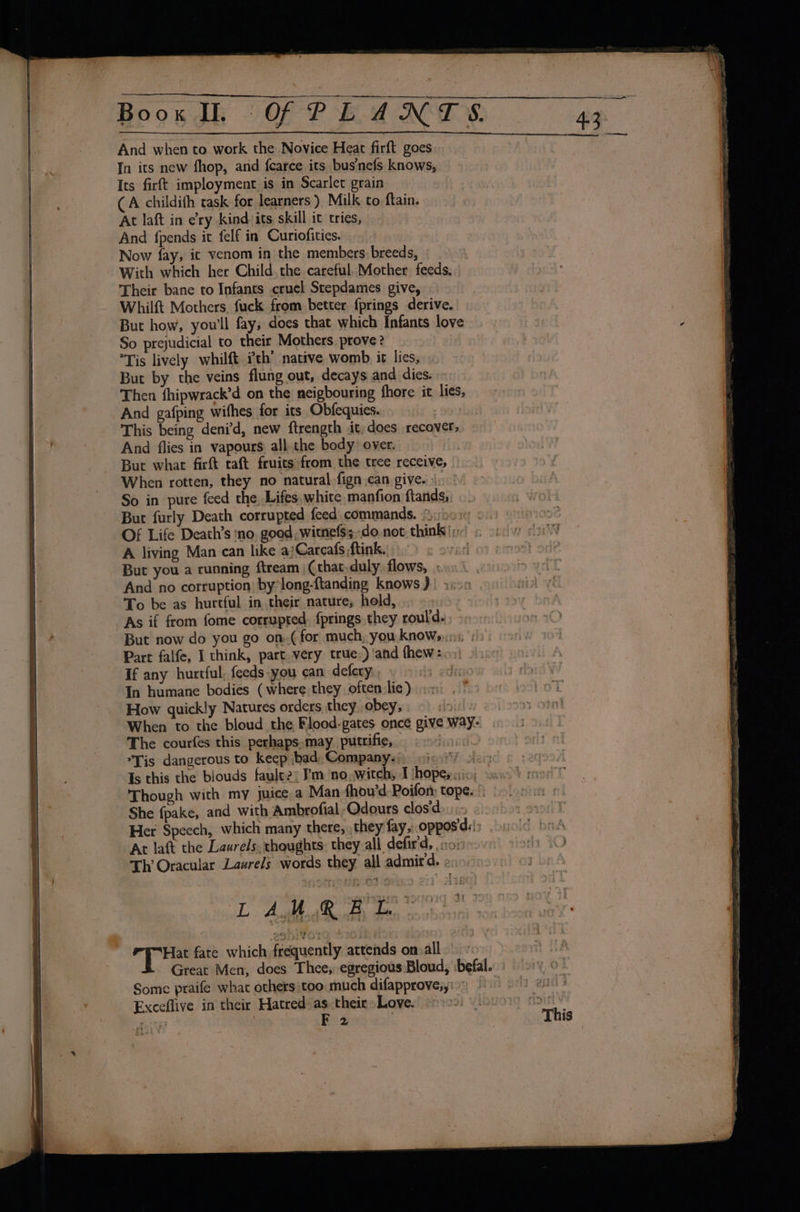 Book II. Of PLANTS. 43
And when to work the Novice Heat firſt goes
In its new ſhop, and ſcarce its bus'neſs knows,
Its firſt imployment is in Scarlet grain
(A childiſh task for learners) Milk to ſtain.
At laſt in e'ry kind its skill it tries,
And ſpends it ſelf in Curioſities.
Now ſay, it venom in the members breeds,
With which her Child the careful Mother feeds.
Their bane to Infants cruel Stepdames give,
Whilſt Mothers ſuck from better ſprings derive.
But how, you'll ſay, does that which Infants love
So prejudicial to their Mothers prove?
'Tis lively whilſt i'th' native womb it lies,
But by the veins flung out, decays and dies.
Then ſhipwrack'd on the neigbouring ſhore it lies,
And gaſping wiſhes for its Obſequies.
This being deni'd, new ſtrength it does recover,
And flies in vapours all the body over.
But what firſt taſt fruits from the tree receive,
When rotten, they no natural ſign can give.
So in pure ſeed the Lifes white manſion ſtands,
But ſurly Death corrupted ſeed commands.
Of Life Death's no good witneſs; do not think
A living Man can like a Carcaſs ſtink.
But you a running ſtream (that duly flows,
And no corruption by long-ſtanding knows)
To be as hurtful in their nature, hold,
As if from ſome corrupted ſprings they roul'd.
But now do you go on (for much you know,
Part falſe, I think, part very true) and ſhew:
If any hurtful ſeeds you can deſcry
In humane bodies (where they often lie)
How quickly Natures orders they obey,
When to the bloud the Flood-gates once give way.
The courſes this perhaps may putrifie,
'Tis dangerous to keep bad Company.
Is this the blouds fault? I'm no witch, I hope,
Though with my juice a Man ſhou'd Poiſon tope.
She ſpake, and with Ambroſial Odours clos'd
Her Speech, which many there, they ſay, oppos'd.
At laſt the Laurels thoughts they all deſir'd,
Th' Oracular Laurels words they all admir'd.
LAUREL.
THat fate which frequently attends on all
Great Men, does Thee, egregious Bloud, befal.
Some praiſe what others too much diſapprove,
Exceſſive in their Hatred as their Love.
F 2
This